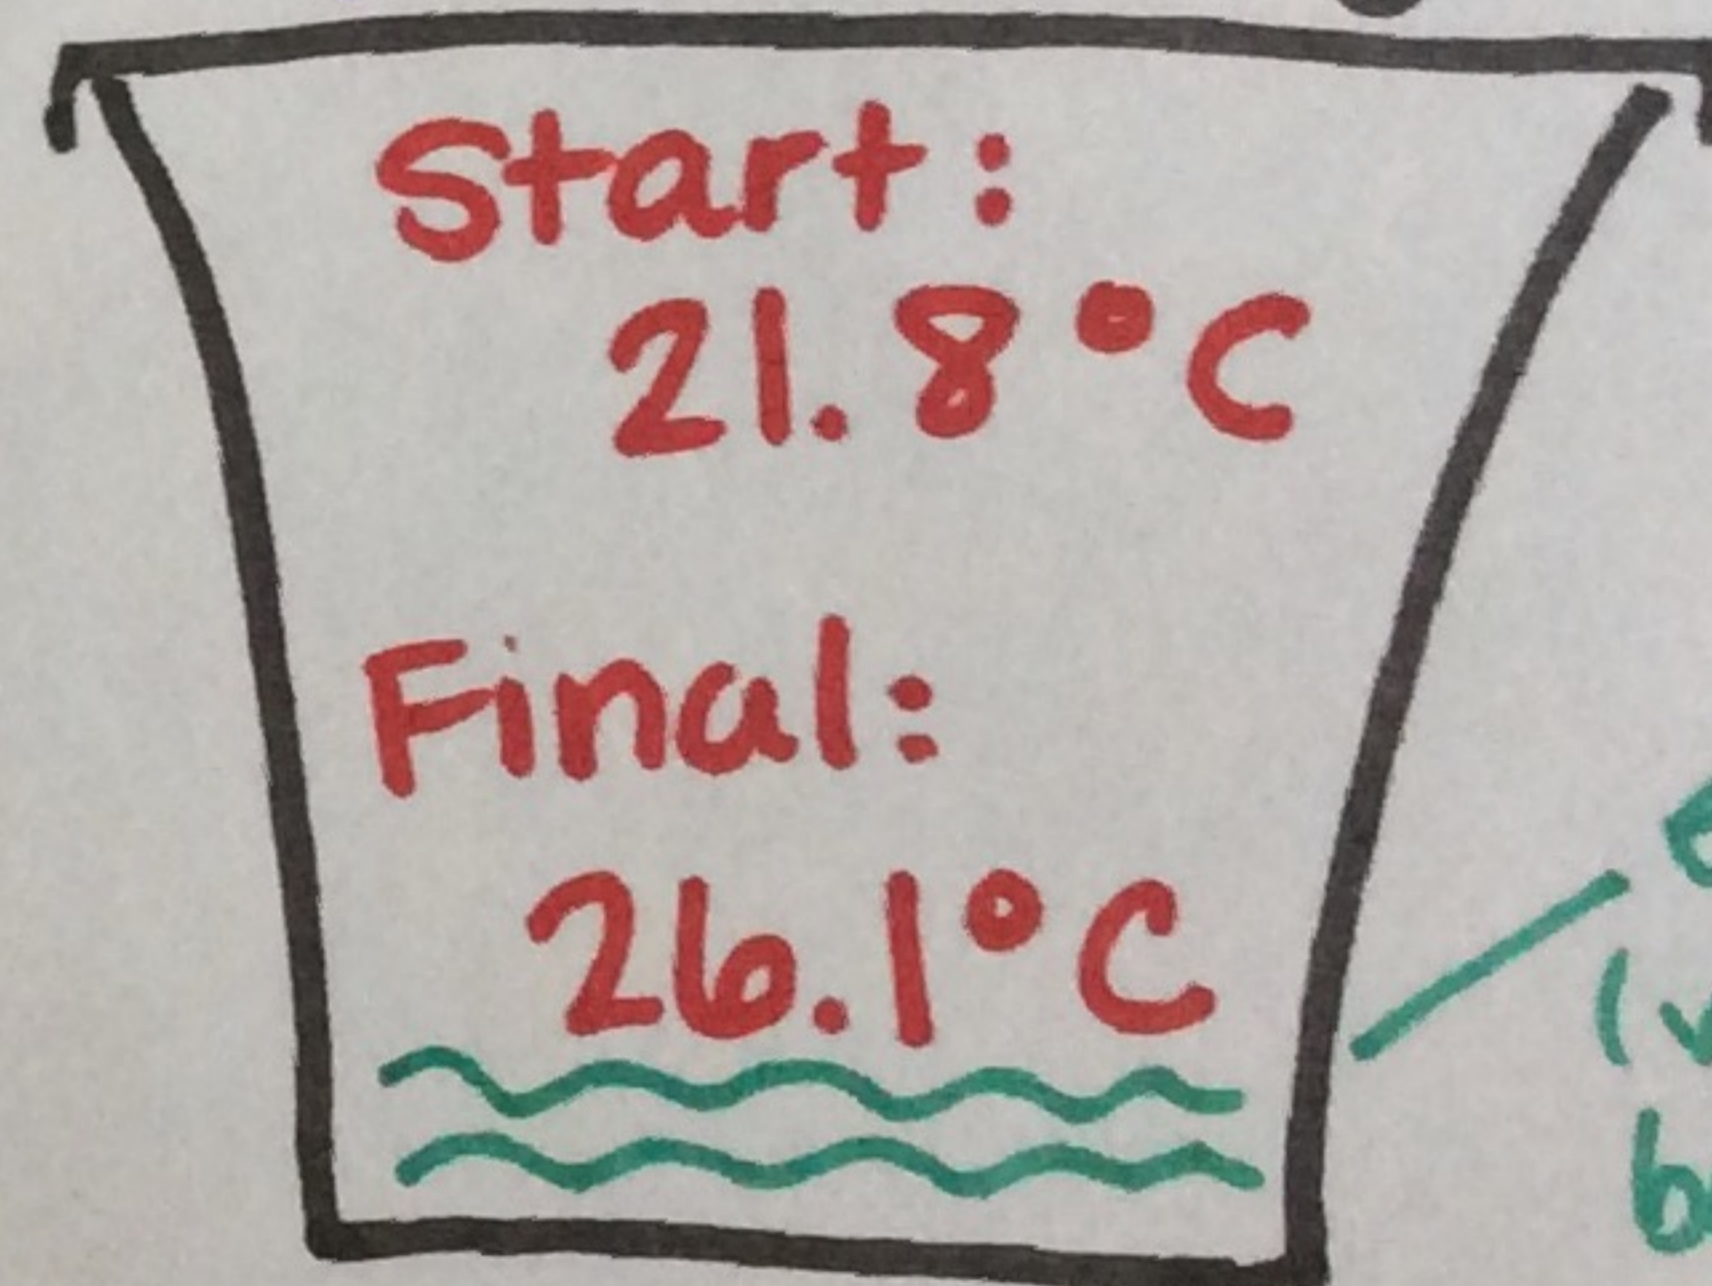 Start:
21.8°C
Final:
26.1°C